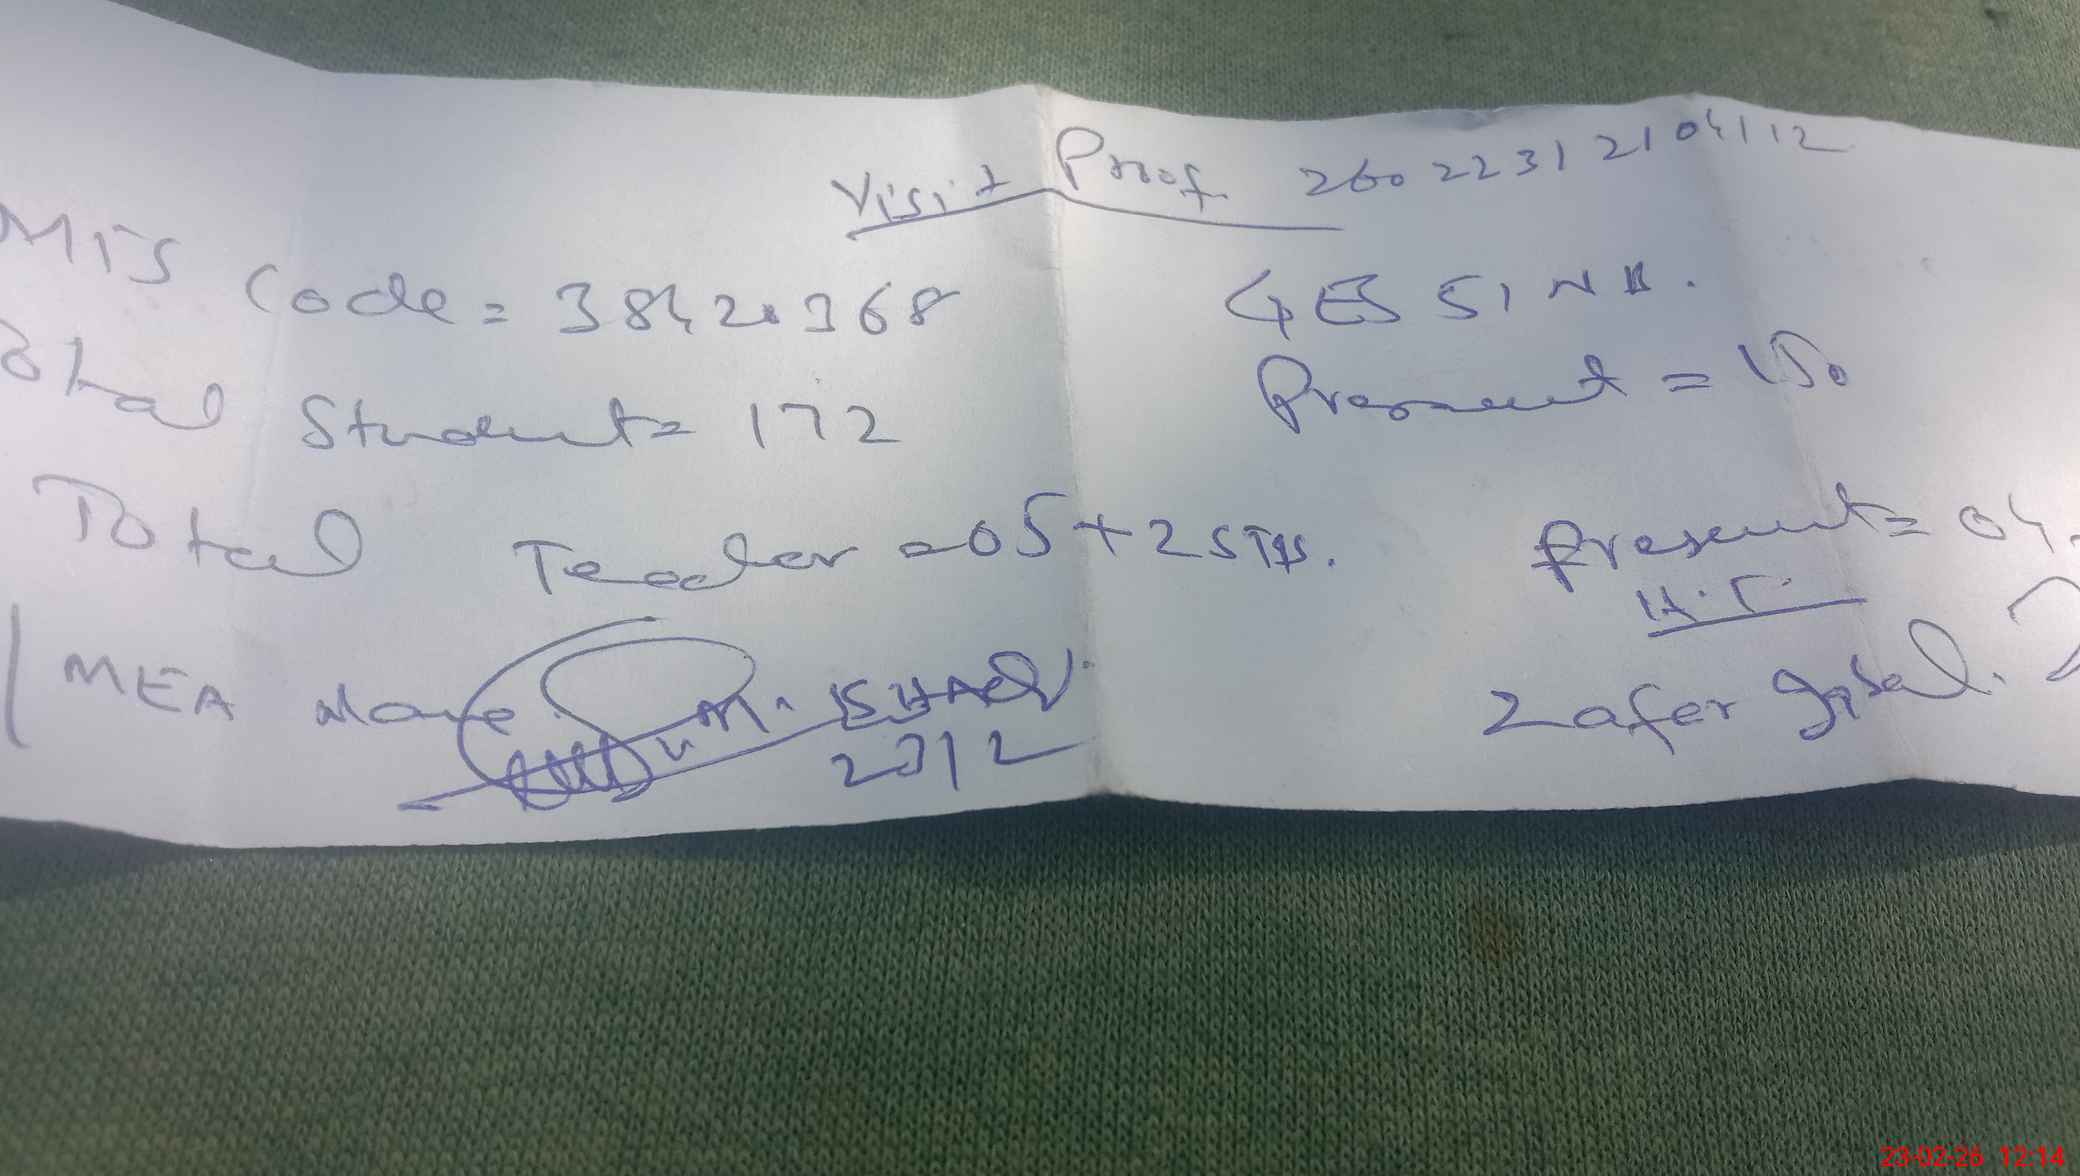 Visit Proof 26022312104112
MIS Code = 38420368 GES SINB.
otal Student = 172 Present = 150
Total Teacher = 05 + 2 STIs. Present = 04.
H.T
MEA Name M. ISHAQ Zafer Iqbal.
23/2
23-02-26 12:14